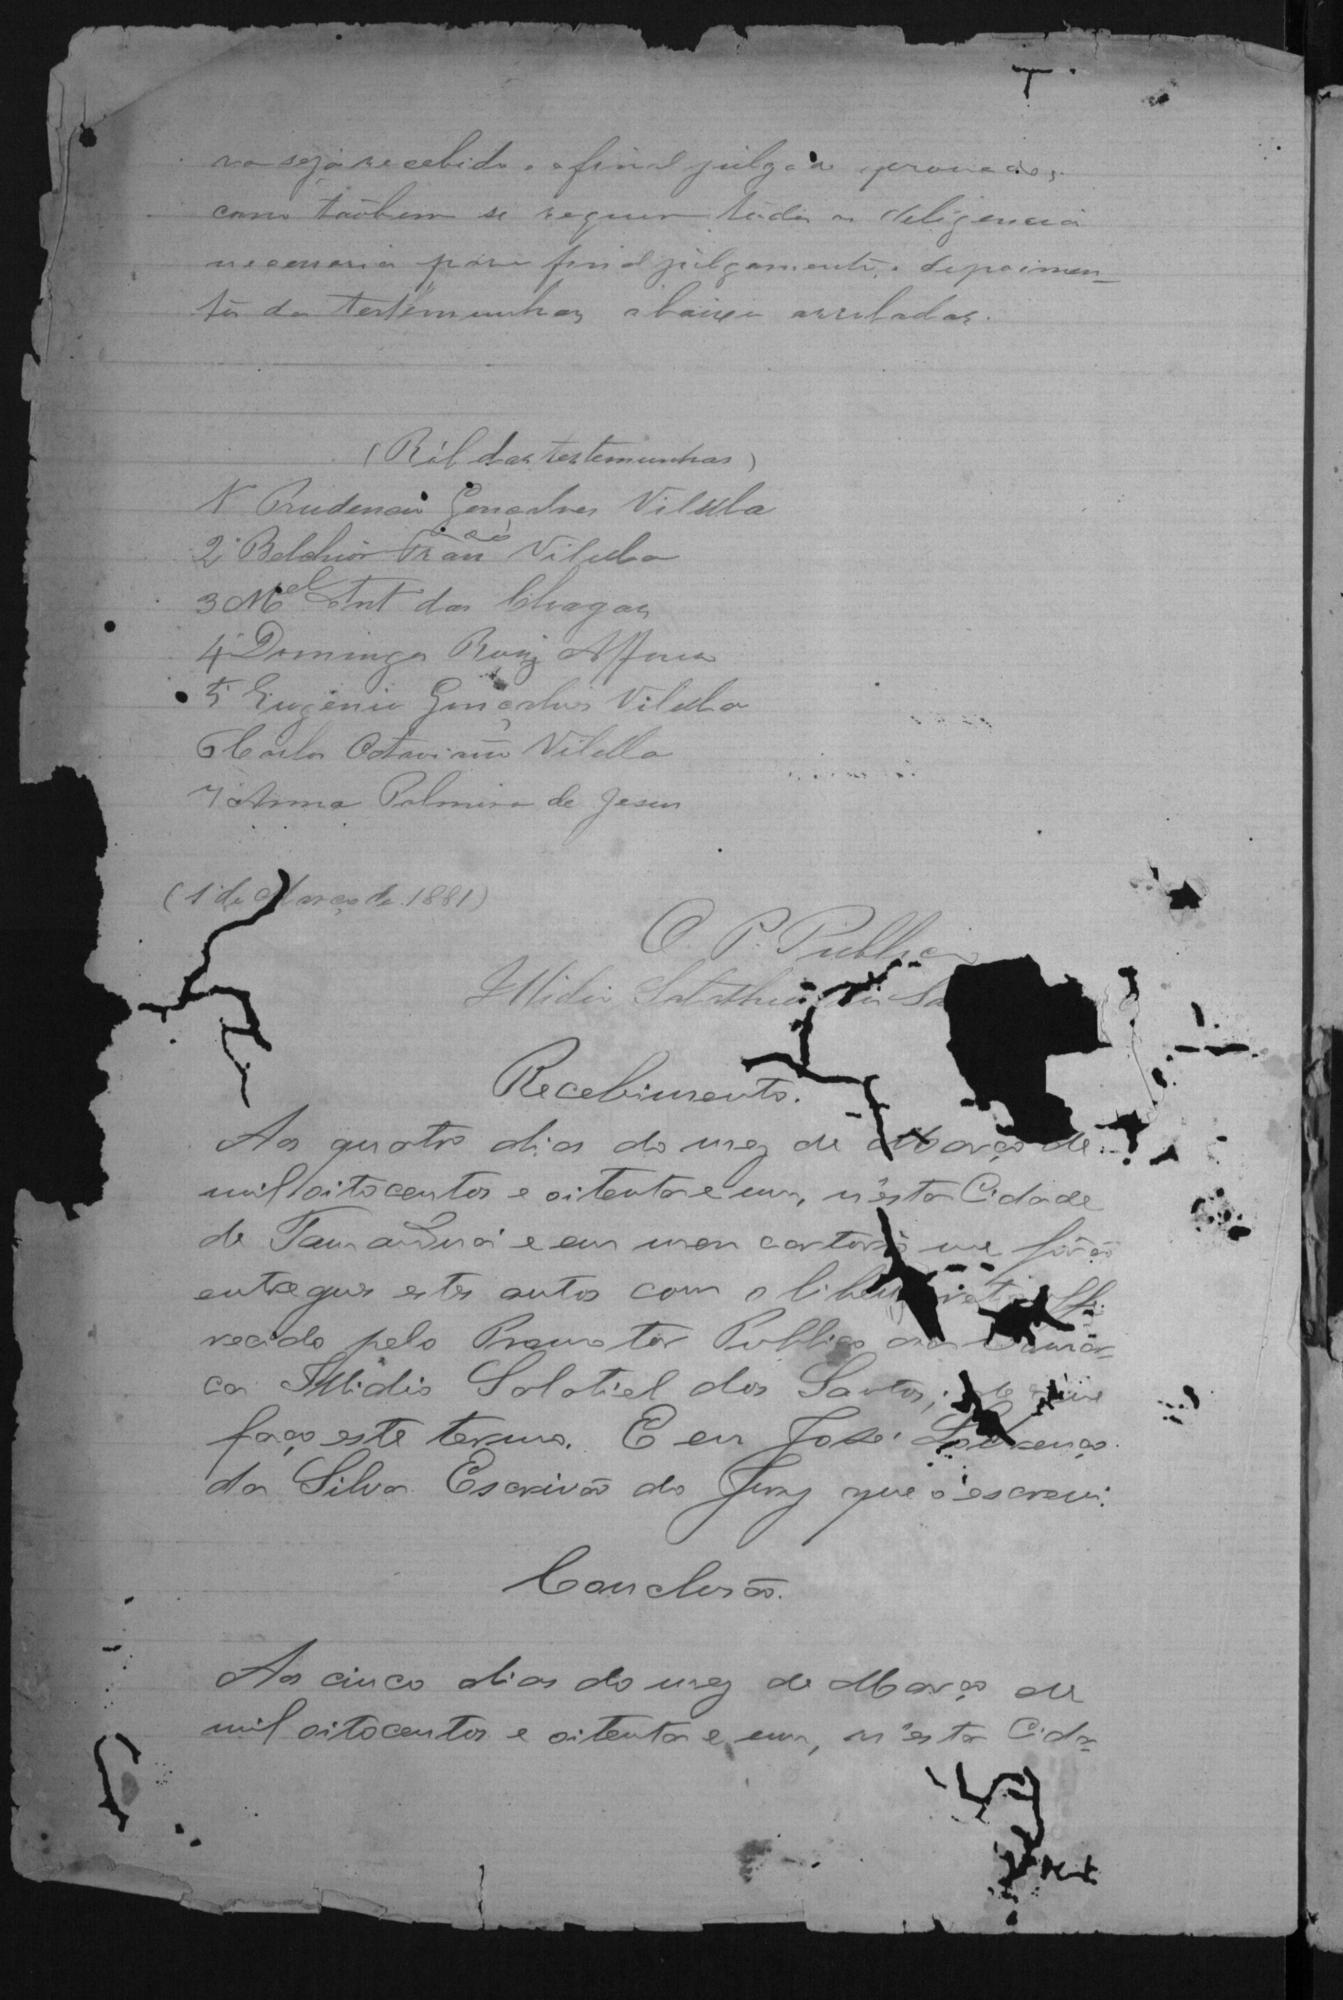 va seja recebido e afinal julgado provado,
como taõbem se requer toda a deligencia
necessaria para final julgamento, e depoimen-
to das testemunhas abaixo arroladas.
(Ról das testemunhas)
1º Prudencio Gonçalves Vilella
2º Belchior Vilella
3 Mel Ant das Chagas
4º Domingos Roiz Affonso
5º Eugenio Gonçalves Vilella
6 Carlos Octaviano Vilella
7 Anna Palmira de Jesus
(1 de Março de 1881)
O. P. Publico
Illidio Salathiel dos Sa
Recebimento.
Aos quatro dias do mez de Março de
mil oitocentos e oitenta e um, n'esta Cidade
de e em meu cartorio me forão
entregues estes autos com o libello offe-
recido pelo Promotor Publico da Comar-
ca Illidio Salatiel dos Santos; de que
faço este termo. E eu José Lourenço
da Silva Escrivão do Jury que o escrevi.
Conclusão.
Aos cinco dias do mez de Março de
mil oitocentos e oitenta e um, n'esta Cida-